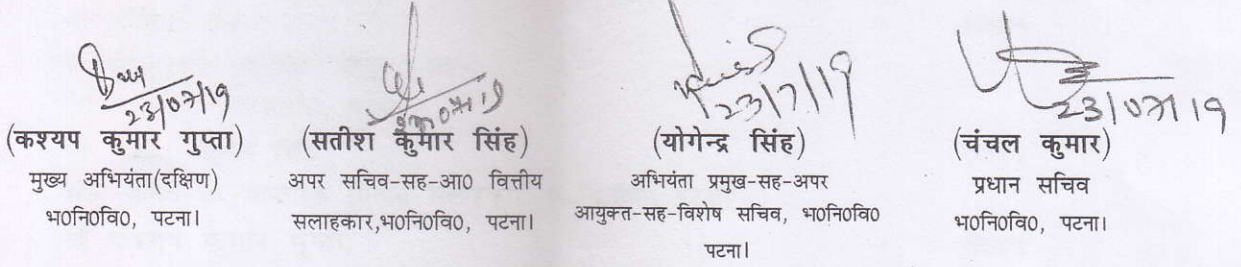 23/07/19
23/7/19
23/07/19
(कश्यप कुमार गुप्ता)
मुख्य अभियंता(दक्षिण)
भ0नि0वि0, पटना।
(सतीश कुमार सिंह)
अपर सचिव-सह-आ0 वित्तीय
सलाहकार,भ0नि0वि0, पटना।
(योगेन्द्र सिंह)
अभियंता प्रमुख-सह-अपर
आयुक्त-सह-विशेष सचिव, भ0नि0वि0
पटना।
(चंचल कुमार)
प्रधान सचिव
भ0नि0वि0, पटना।